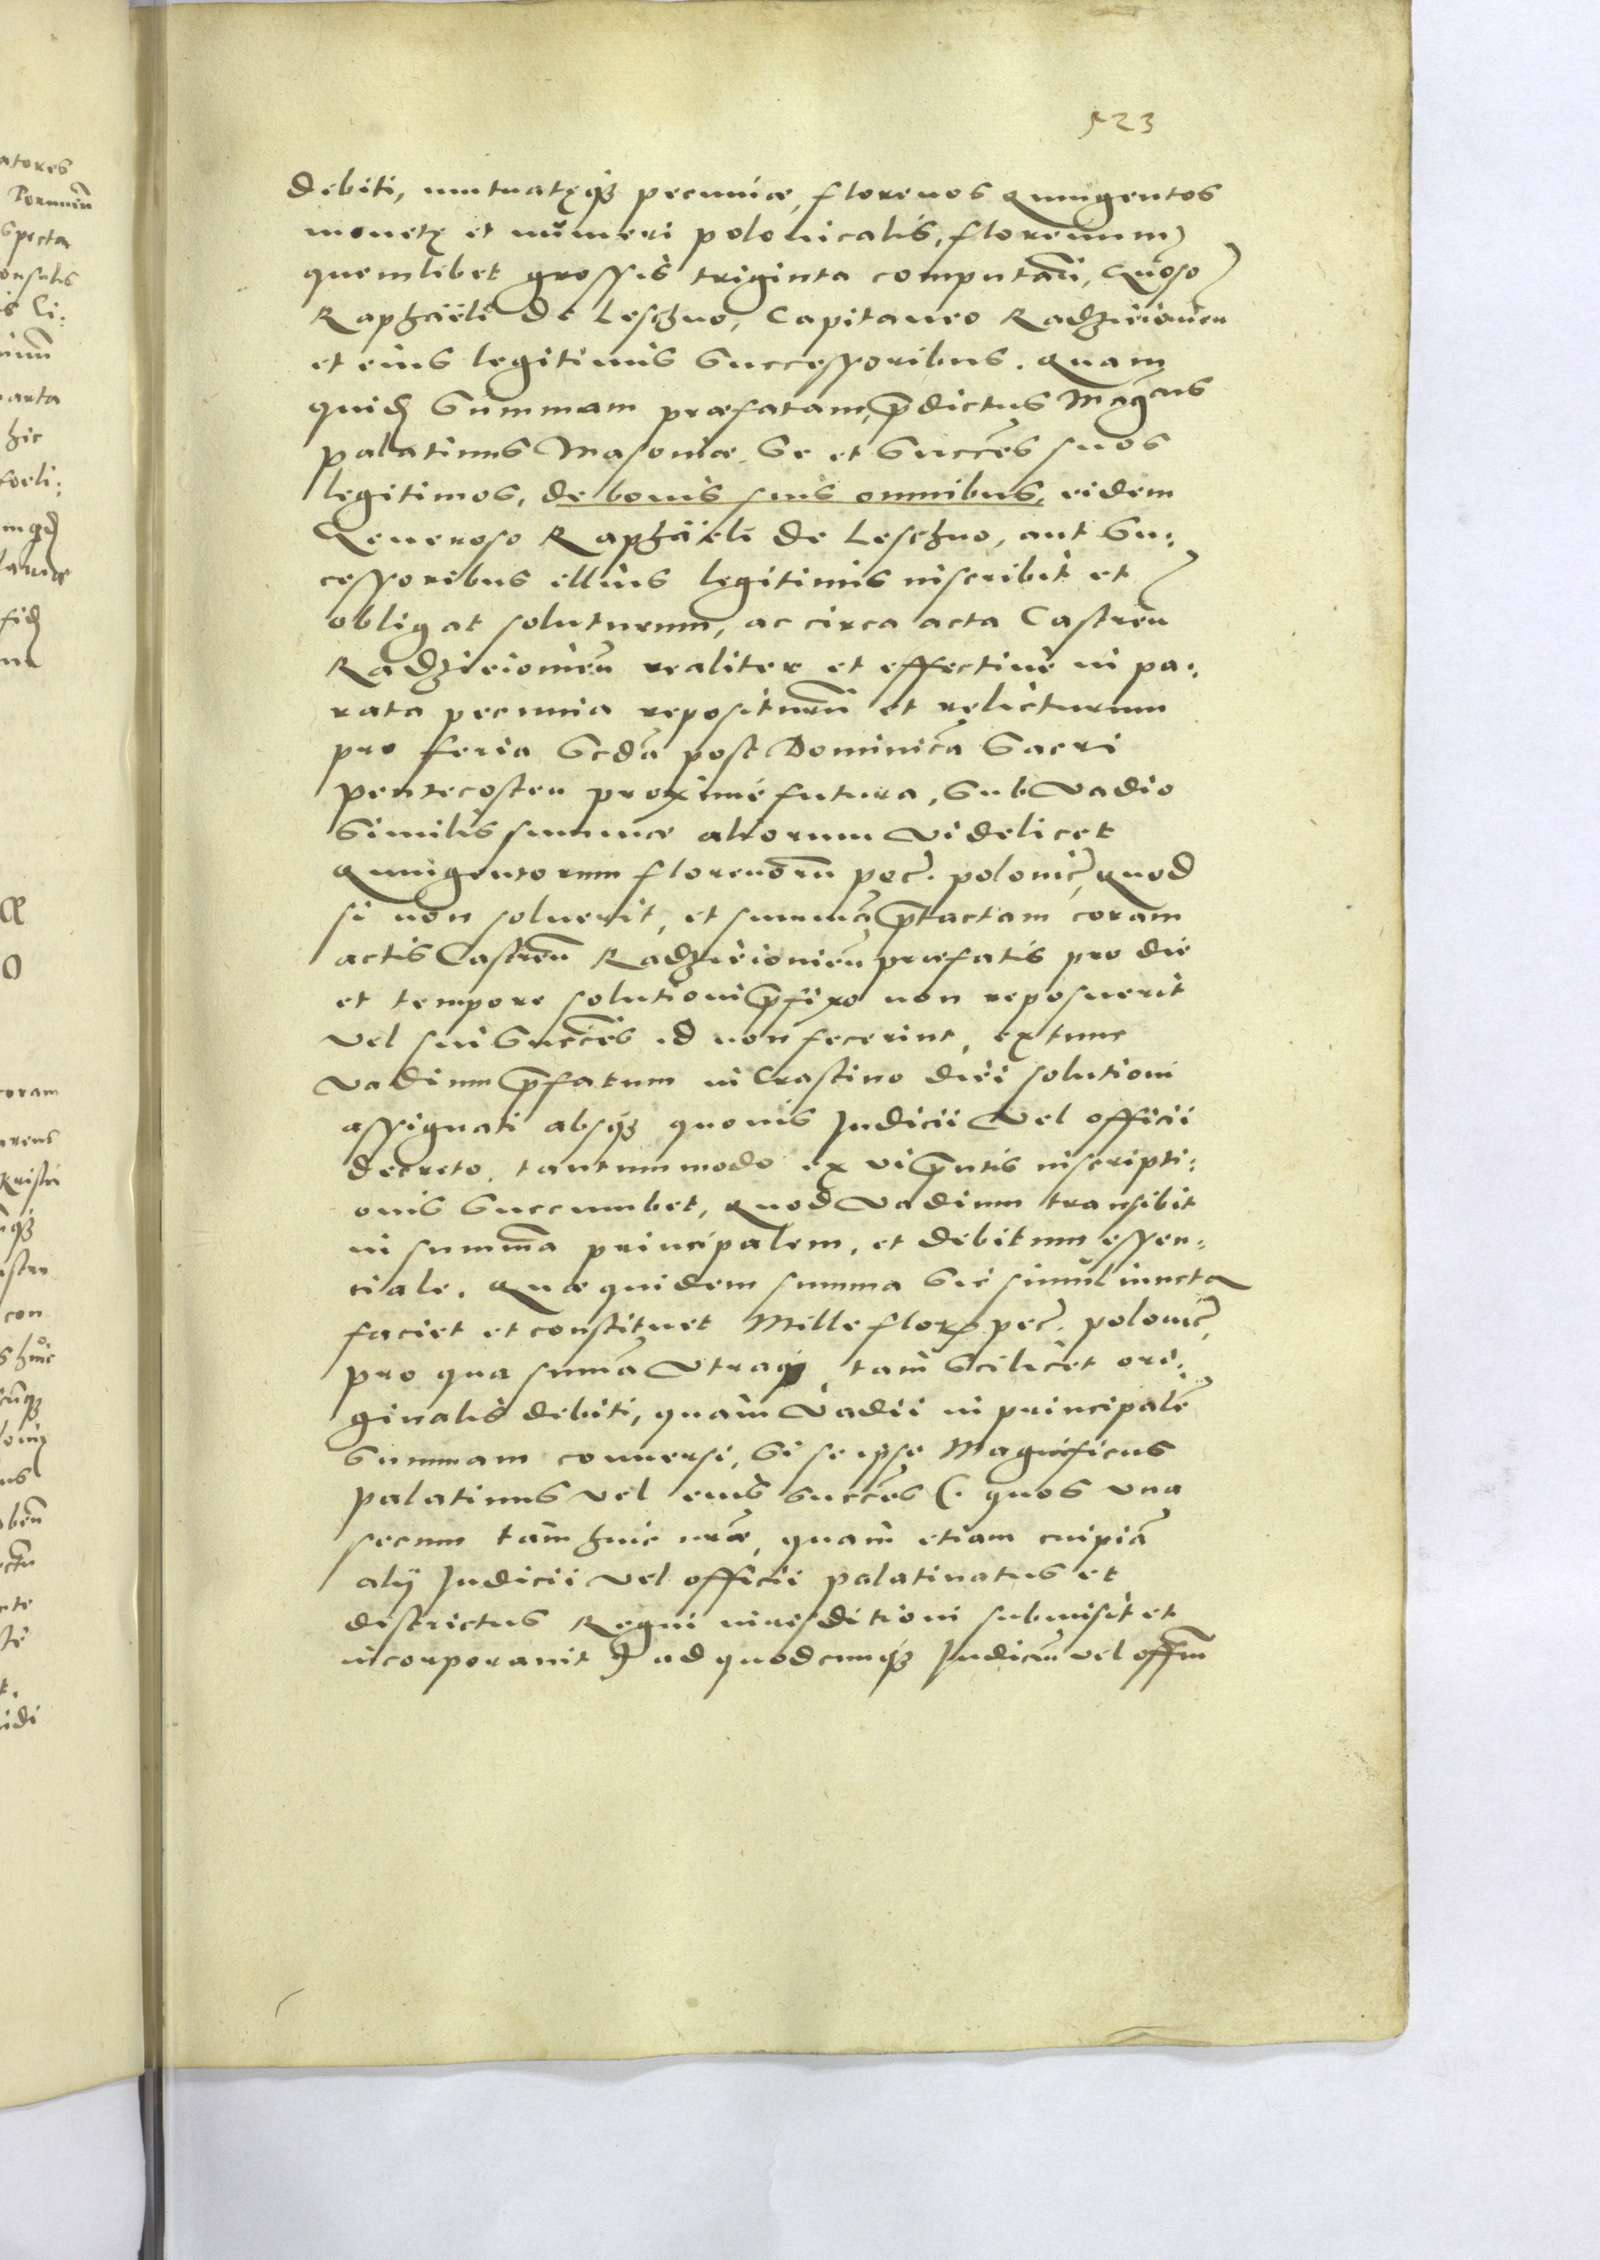 523
debiti, mutuatęq3 pecuniæ, florenos Quingentos
monetę et nŭmeri polonicalis, florenum
quemlibet grossis triginta computañ, Gñoso
Raphaëli de Leschno, Capitaneo Radzieiouien
et eius legitimis Successoribus. Quam
quid Summam præfatam, p̃dictus Mag͂cus
palatinus Masouiæ. Se et Succ͂es suos
legitimos, de bonis suis omnibus, eidem
Generoso Raphaëli de Leschno, aut Su:
cessoribus illius legitimis inscribit et
obligat soluturum, ac circa acta Castreñ
Radzieiouieñ realiter et effectiuè in pa:
rata pecunia repositurũ et relicturum
pro feria Scdã post Dominicã Sacri
pentecosten proximè futura, Sub Vadio
Similis summæ aliorum Videlicet
Quingentorum florenorũ pec͂. polonic͂, Quod
si non soluerit, et summã p̃tactam coram
actis Castreñ Radzieiouieñ præfatis pro die
et tempore solutioni p̃fixo non reposuerit
vel sui Succ͂es id non fecerint, extunc
Vadium p̃fatum in Crastino diei solutioni
assignati absq3 quouis Judicii Vel officii
decreto. tantummodo ex vi p̃ntis inscripti:
onis Succumbet, Quod Vadium transibit
in summã principalem, et debitum essen:
tiale. Quæ quidem summa Sic simul iuncta
faciet et constituet Mille flor pec͂. polonic͂,
pro qua sumã Vtraq3, tam Scilicet ori:
ginalis debiti, quàm Vadii in principalẽ
Summam conuersi, Si se ipse Magnificus
palatinus vel eius succ͂es (: quos vna
secum tàm huic nrãe, quàm etiam cuipiã
alij Judicii vel officii palatinatus et
districtus Regni iurisditioni submisit et
incorporauit :) ad quodcunq3 Judiciũ vel offm̃